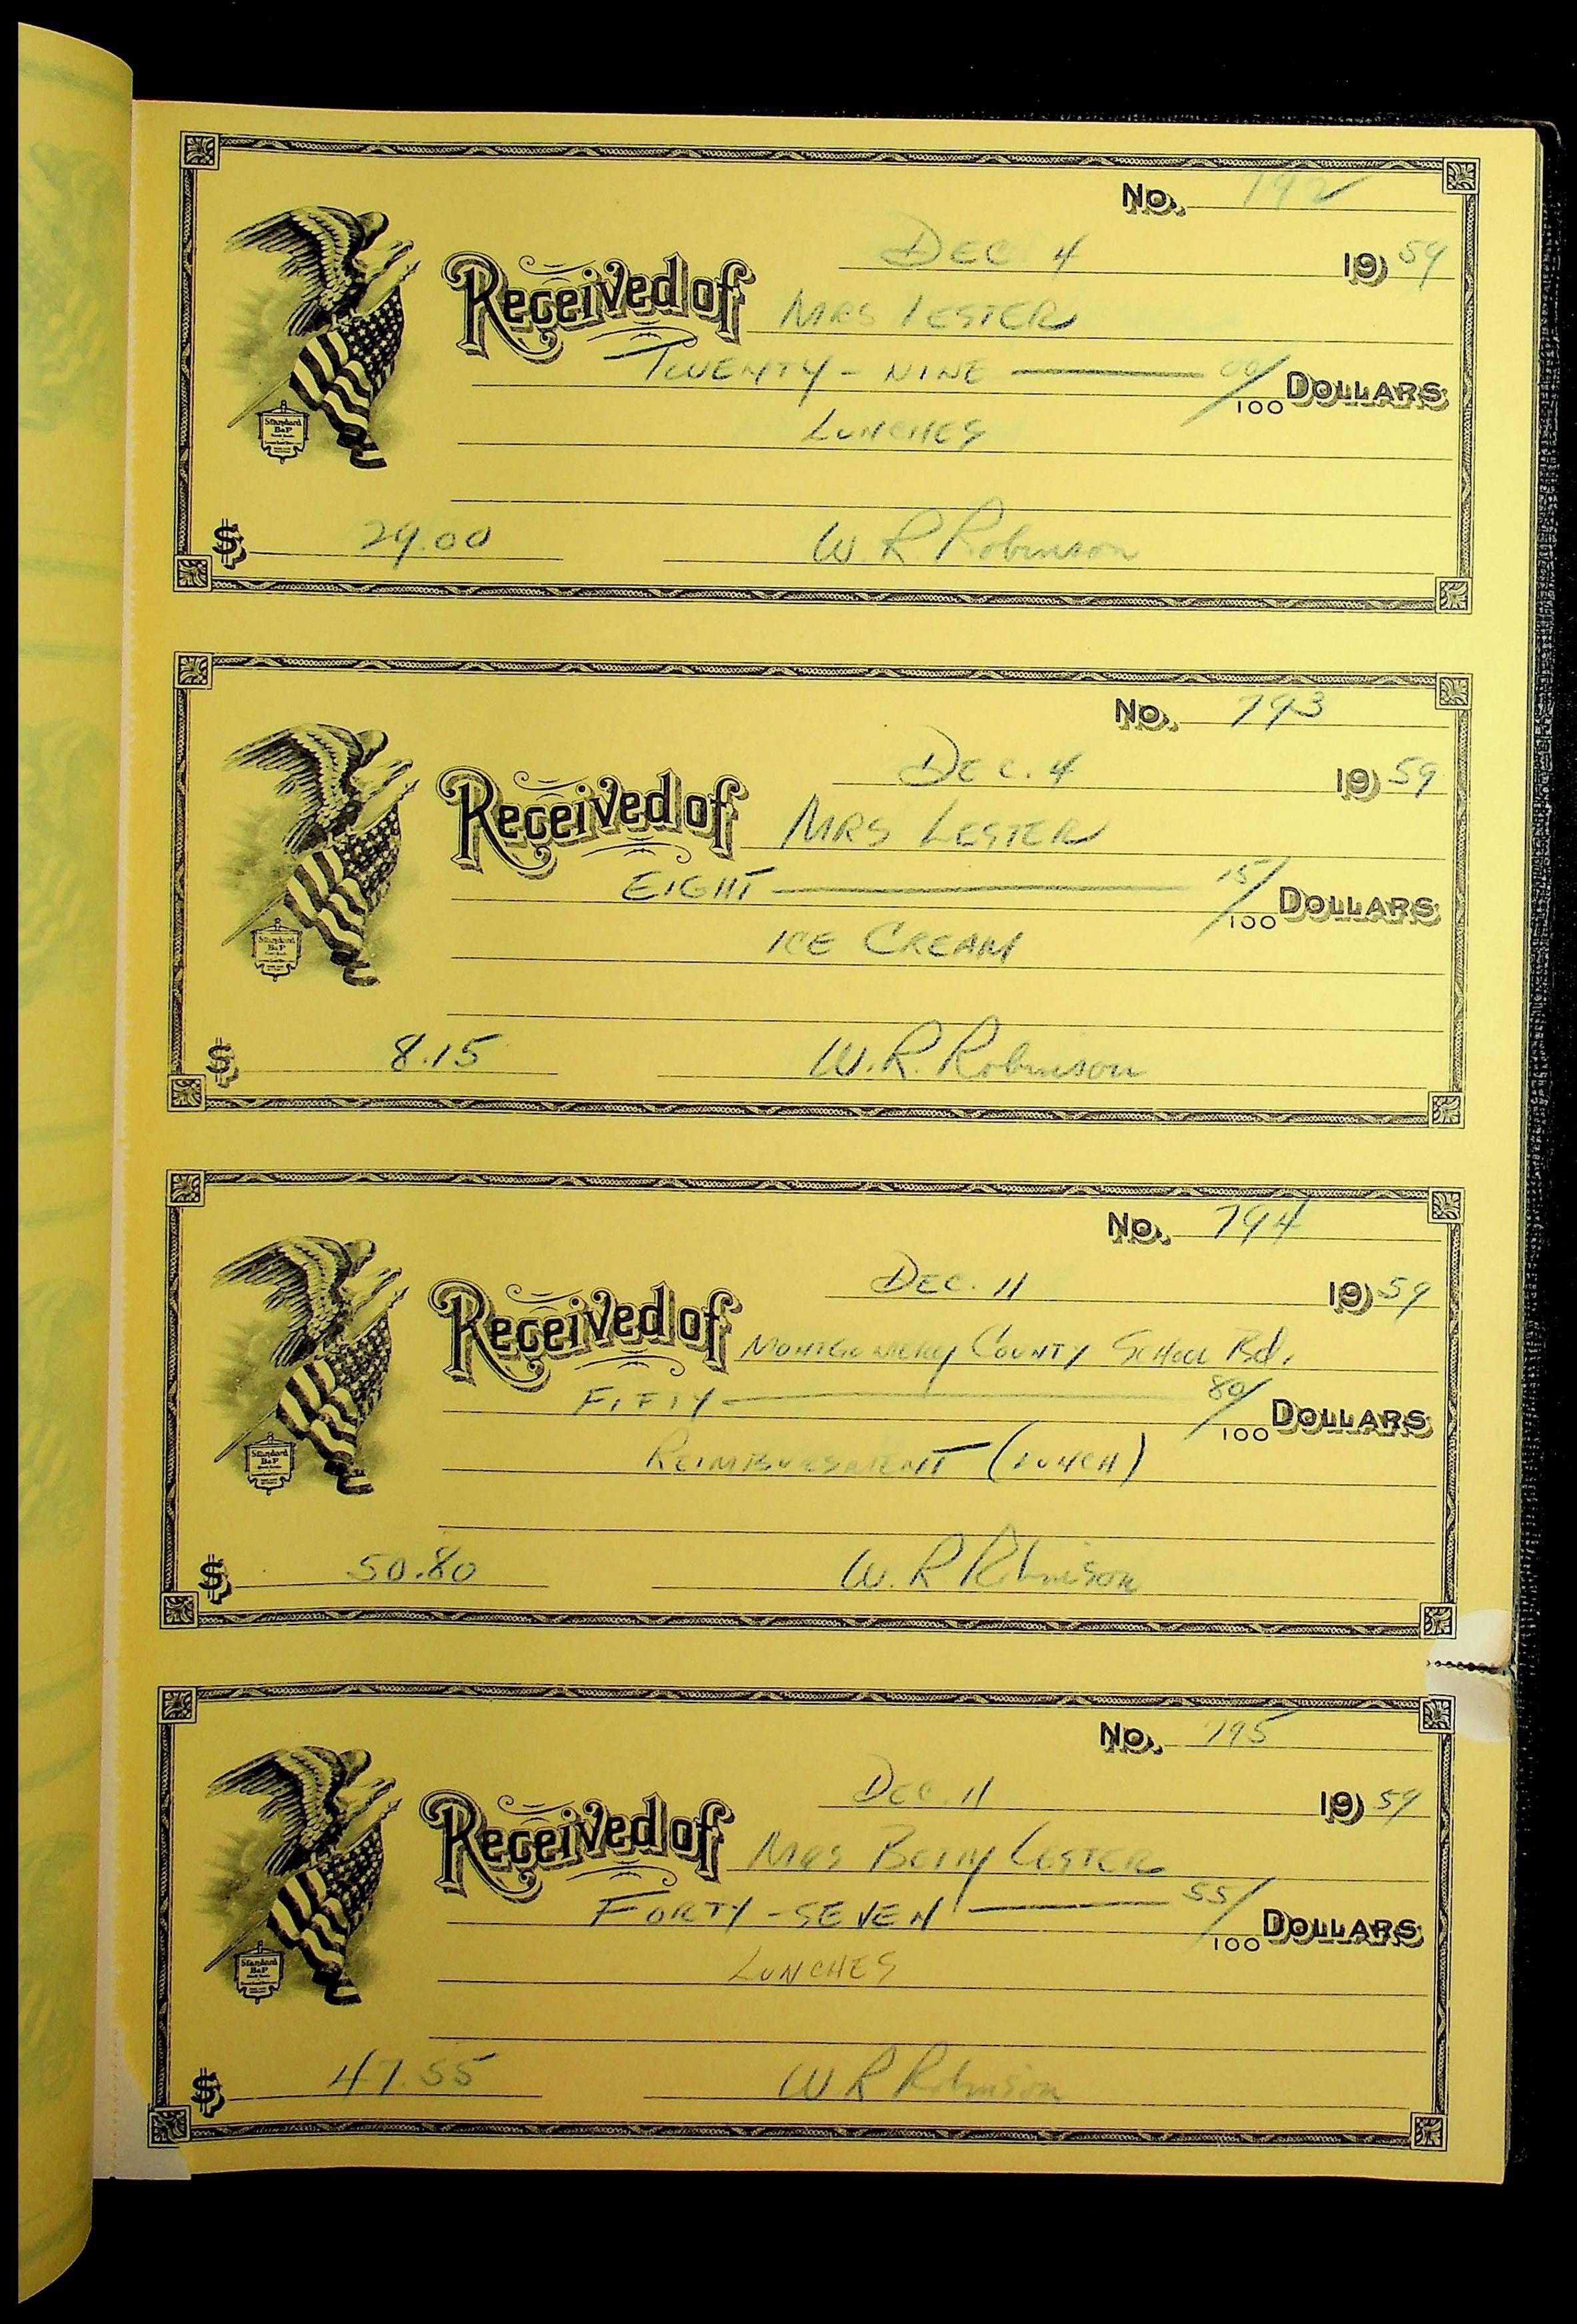 No. 792
DEC 4 1959
Received of MRS LESTER
TWENTY-NINE 00/100 DOLLARS
LUNCHES
$ 29.00 W. R Robinson
Standard
B&P
No. 793
DEC. 4 1959
Received of MRS LESTER
EIGHT 15/100 DOLLARS
ICE CREAM
$ 8.15 W. R. Robinson
Standard
B&P
No. 794
DEC. 11 1959
Received of MONTGOMERY COUNTY SCHOOL Bd.
FIFTY 80/100 DOLLARS
REIMBURSEMENT (LUNCH)
$ 50.80 W. R Robinson
Standard
B&P
No. 795
DEC. 11 1959
Received of MRS BETTY LESTER
FORTY-SEVEN 55/100 DOLLARS
LUNCHES
$ 47.55 W R Robinson
Standard
B&P